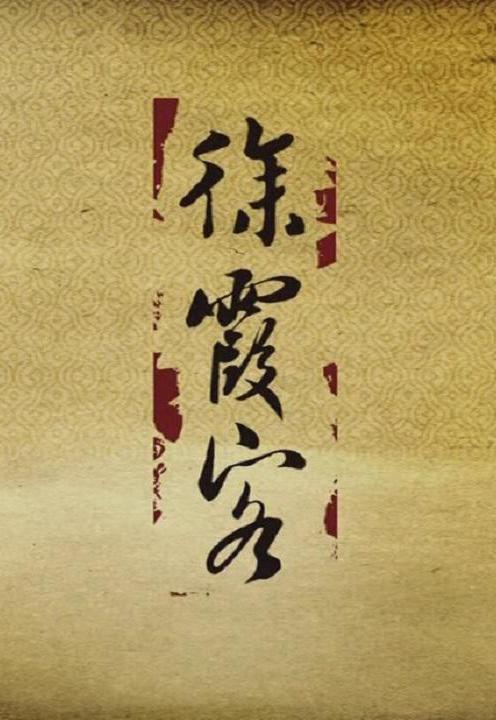 徐霞客